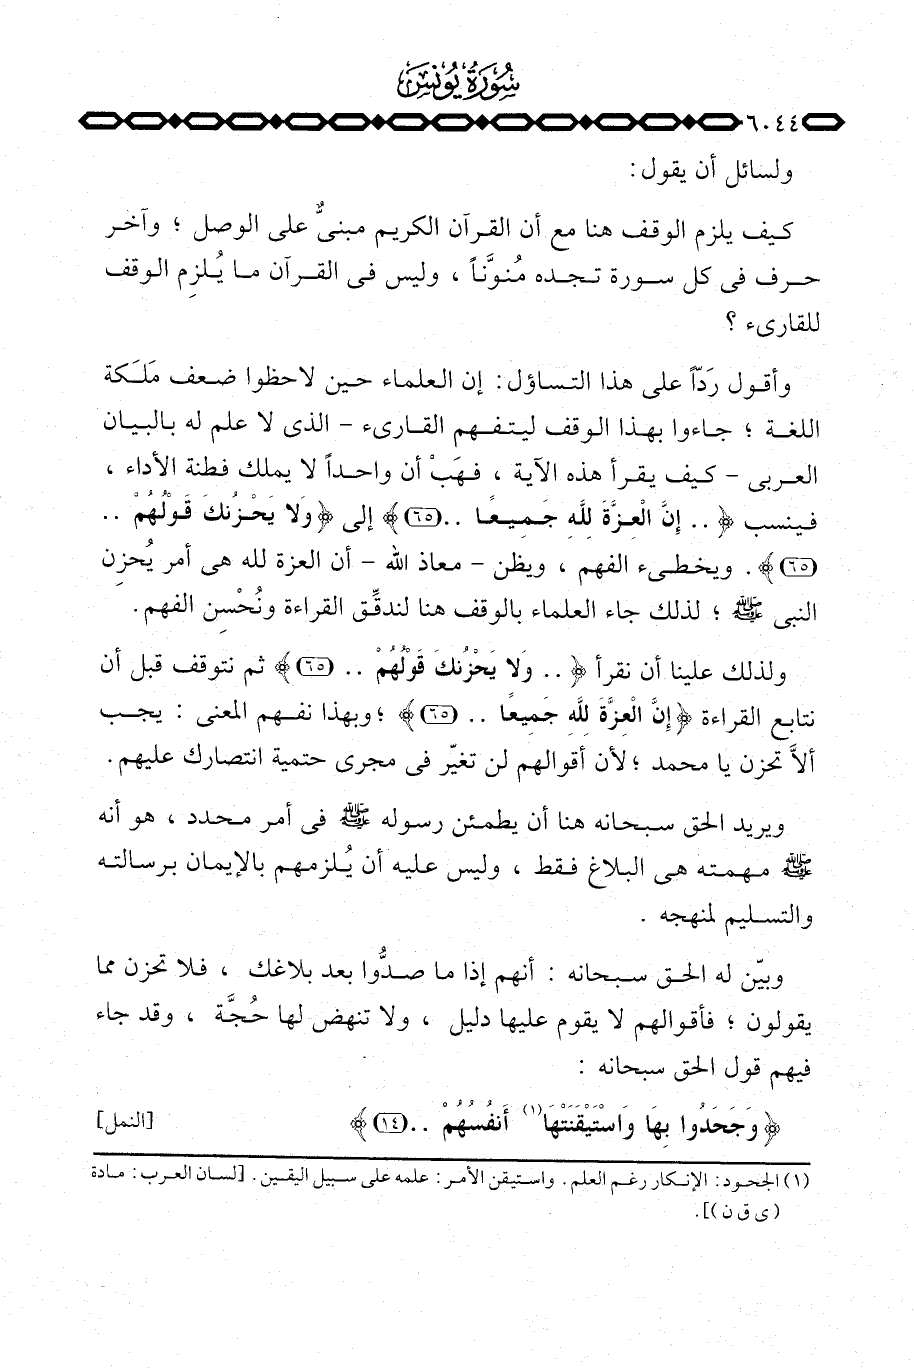 سُورَةُ يُونُسَ
٦٠٤٤
ولسائل أن يقول:
كيف يلزم الوقف هنا مع أن القرآن الكريم مبنىٌّ على الوصل ؛ وآخر
حرف فى كل سورة تجده مُنوَّناً ، وليس فى القرآن ما يُلزِم الوقف
للقارىء ؟
وأقول رَدّاً على هذا التساؤل: إن العلماء حين لاحظوا ضعف مَلَكة
اللغة ؛ جاءوا بهذا الوقف ليتفهم القارىء – الذى لا علم له بالبيان
العربى – كيف يقرأ هذه الآية ، فهَبْ أن واحداً لا يملك فطنة الأداء ،
فينسب ﴿ .. إِنَّ الْعِزَّةَ لِلَّهِ جَمِيعًا ..(٦٥)﴾ إلى ﴿وَلا يَحْزُنكَ قَوْلُهُمْ ..
(٦٥)﴾. ويخطىء الفهم ، ويظن – معاذ الله – أن العزة لله هى أمر يُحزِن
النبى ﷺ ؛ لذلك جاء العلماء بالوقف هنا لندقِّق القراءة ونُحْسِن الفهم.
ولذلك علينا أن نقرأ ﴿ .. وَلا يَحْزُنكَ قَوْلُهُمْ .. (٦٥)﴾ ثم نتوقف قبل أن
نتابع القراءة ﴿إِنَّ الْعِزَّةَ لِلَّهِ جَمِيعًا .. (٦٥)﴾ ؛وبهذا نفهم المعنى : يجب
ألاَّ تحزن يا محمد ؛لأن أقوالهم لن تغيّر فى مجرى حتمية انتصارك عليهم.
ويريد الحق سبحانه هنا أن يطمئن رسوله ﷺ فى أمر محدد ، هو أنه
ﷺ مهمته هى البلاغ فقط ، وليس عليه أن يُلزمهم بالإيمان برسالته
والتسليم لمنهجه .
وبيّن له الحق سبحانه : أنهم إذا ما صدُّوا بعد بلاغك ، فلا تحزن مما
يقولون ؛ فأقوالهم لا يقوم عليها دليل ، ولا تنهض لها حُجَّة ، وقد جاء
فيهم قول الحق سبحانه :
﴿وَجَحَدُوا بِهَا وَاسْتَيْقَنَتْهَا(١) أَنفُسُهُمْ ..(١٤)﴾ [النمل]
(١) الجحود: الإنكار رغم العلم. واستيقن الأمر: علمه على سبيل اليقين. [لسان العرب: مادة
(ى ق ن)].